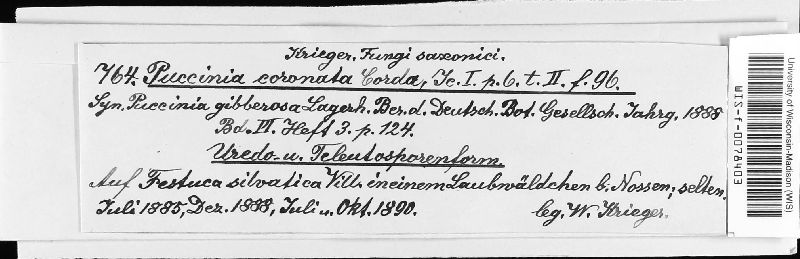 Krieger, Fungi saxonici.
764. Puccinia coronata Corda, Ic. I. p. 6. t. II. f. 96.
Syn. Puccinia gibberosa Lagerh. Ber. d. Deutsch. Bot. Gesellsch. Jahrg. 1888
Bd. VI. Heft 3. p. 124.
Uredo- u. Teleutosporenform.
Auf Festuca silvatica Vill. in einem Laubwäldchen b. Nossen; selten.
Juli 1885, Dez. 1888, Juli u. Okt. 1890.
leg. W. Krieger.
University of Wisconsin-Madison (WIS)
WIS-f-0078403